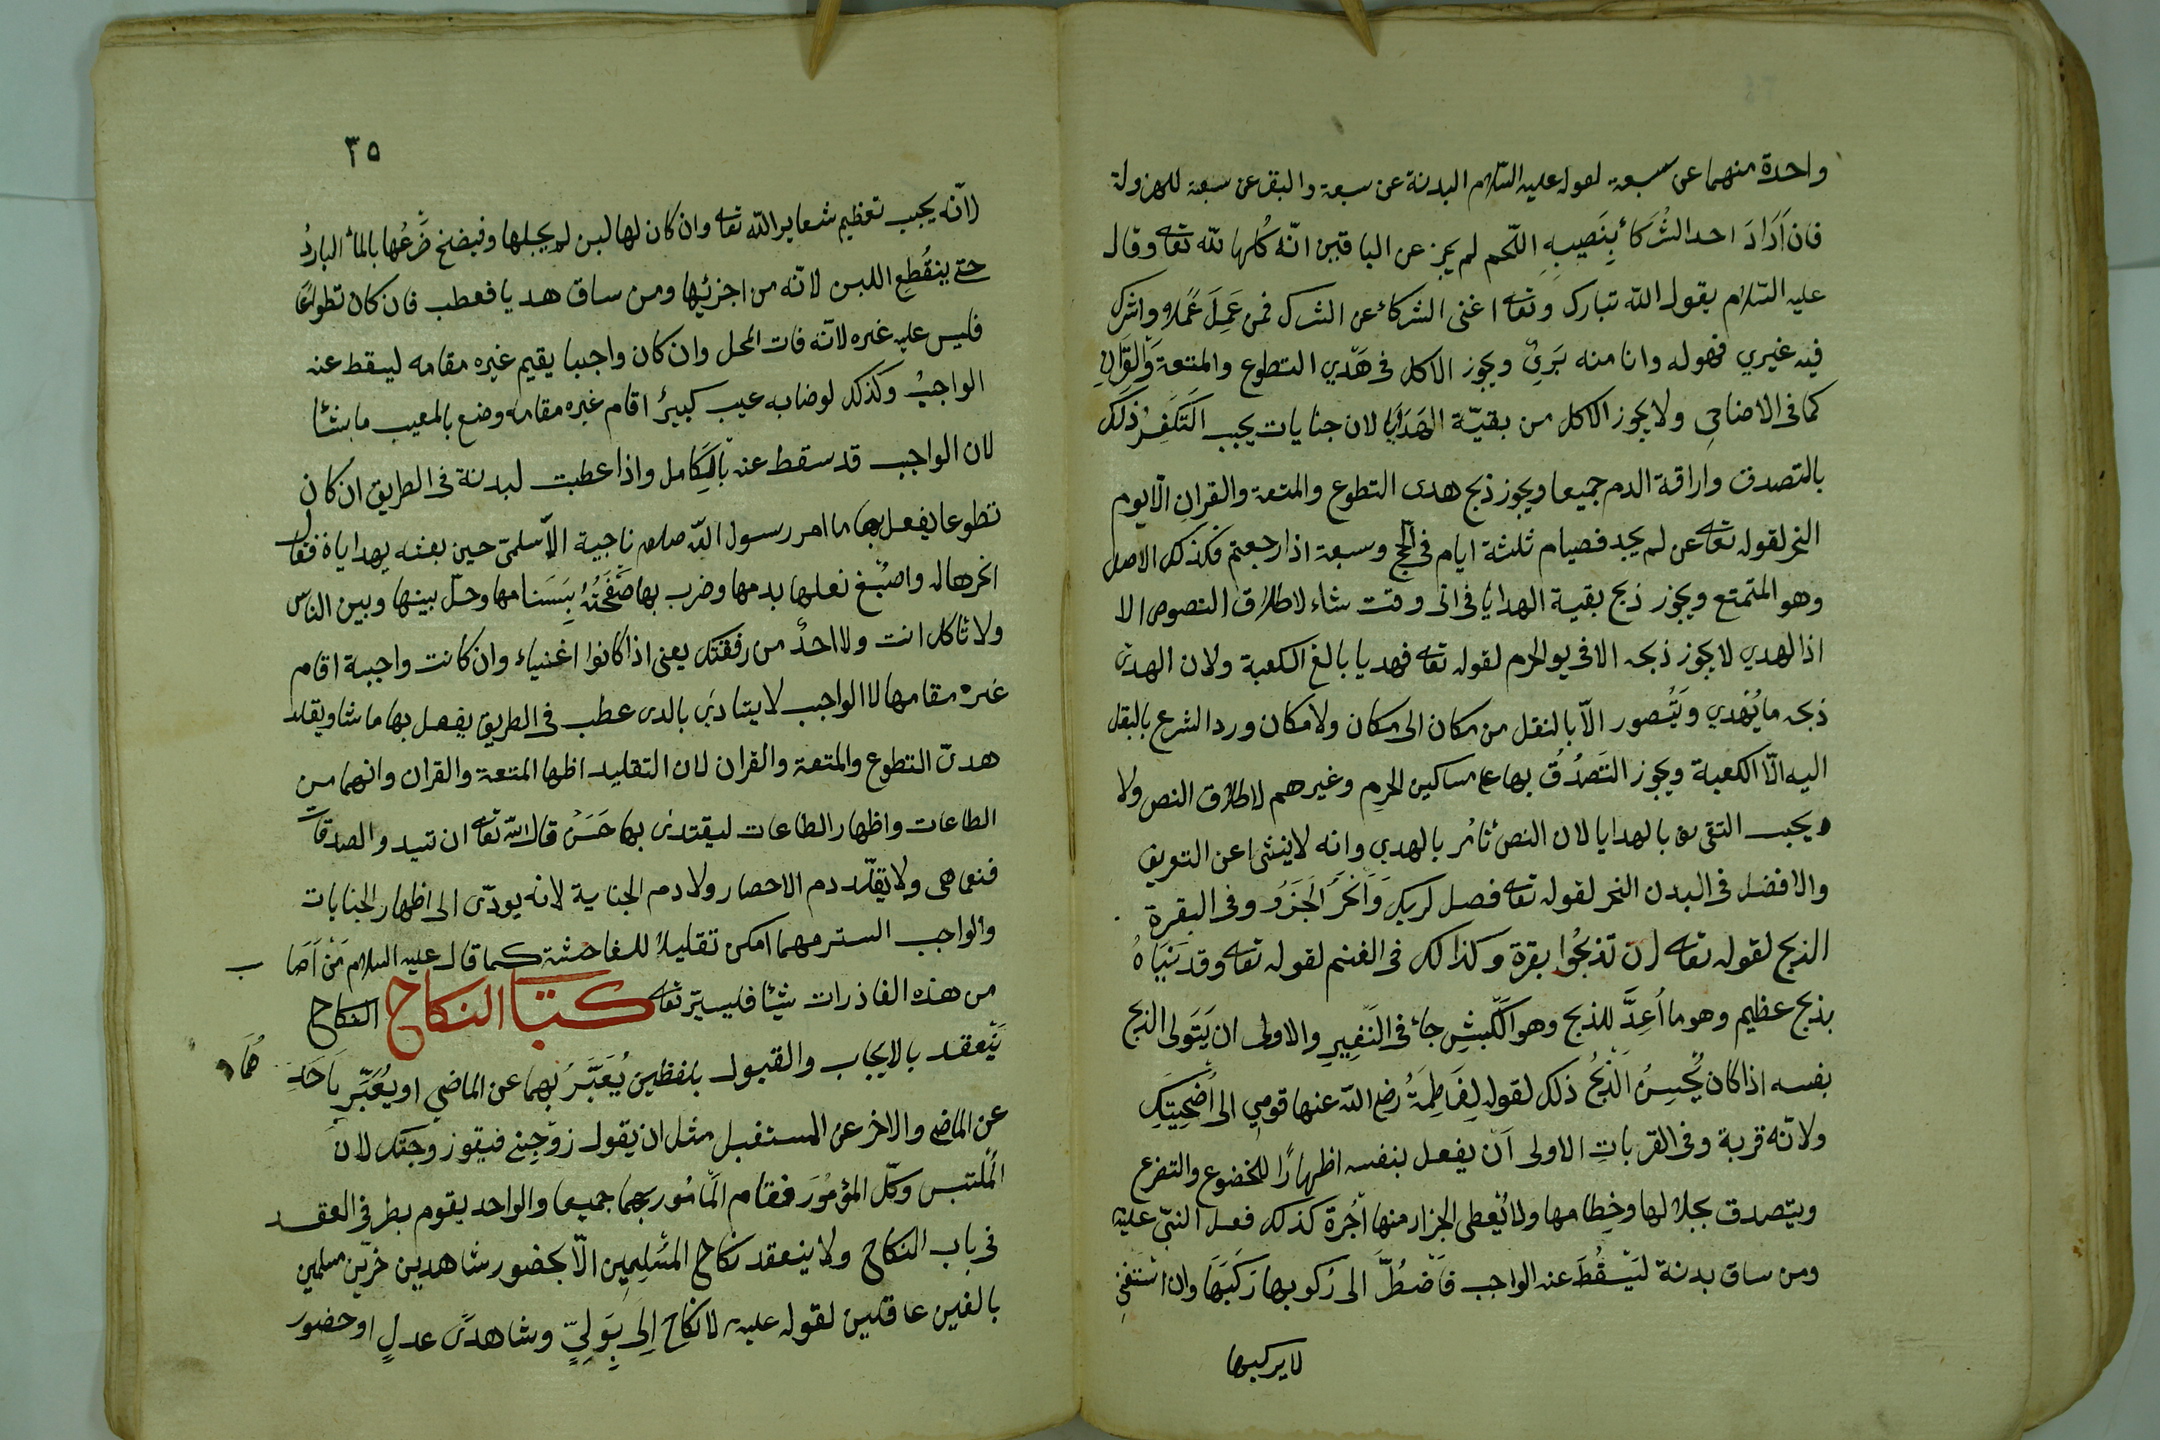 واحدة منهما عن سبعة لقوله عليه السّلام البدنة عن سبعة والبقر عن سبعة للهزولة
فان اَرَادَ احد الشُركاءِ بِنَصيبِهِ اللّحم لم يجز عن الباقيين انّه كُلها للّه تعا وقال
عليه السّلام يقول اللّه تبارك وتعا اغنى الشركاء عن الشرك فمن عَمِلَ عَملا واشرك
فيه غيري فهوله وانا منه بَرِيٌ ويجوز الاكل فى هَدّي التطوع والمتعة وَالقِرَانِ
كما فى الاضاحى ولا يجوز الاكل من بقيّة الهَدَايَا لان جنايات يجب التكفيرُ ذلك
بالتصدق واراقة الدم جميعا ويجوز ذبح هدى التطوع والمتعة والقرانِ الّا يوم
النحر لقوله تعا عن لم يجد فصيام ثلثة ايام فى الحج وسبعة اذا رجعتم فكذلك الاصل
وهو المتمتع ويجوز ذبح بقية الهدايا فى اى وقت شاء لاطلاق النصوص الا
اذالهدي لا يجوز ذبحه الا فى يو الحرم لقوله تعا فهديا بالغ الكعبة ولان الهدى
ذبحه ما يُهدي ويُتصور الاّ بالنقل من مكان الى مكان ولا مكان ورد الشرع بالنقل
اليه الّا الكعبة ويجوز التَصدُق بها ع مساكين الحرم وغيرهم لاطلاق النص ولا
ويجب التعريف بالهدايا لان النص بالهدي وانه لا ينبئ عن التعريف
والافضل فى البدن النحر لقوله تعا فصل لربك وَانْحَرْ الجَزُوُ وفى البقرة
الذبح لقوله تعا ان تذبحُوا بقرة وكذالك فى الغنم لقوله تعا وقد
بذبح عظيم وهو ما اُعِدَّ للذبح وهو الكَبشِ جاء فى التَفسِيرِ والاولى ان يَتَولى الذبح
بفسه اذا كان يُحْسِنُ الذبحُ ذلك لقوله لِفَاطِمَةُ رضى اللّه عنها قومِي الى أُضْحِيَتِكِ
ولانّه قربة وفى القرباتِ الاولى اَن يفعل بنفسه اظهارًا للخضوع والتضرع
ويتصدق بجلالها وخِطامها ولا يُعطى الجزار منها اُجْرة كذلك فعل النبّى عليه
ومن ساق بدنة ليَسْقُطَ عنه الواجب فَاَضْطُرَّ الى رُكوبها رَكَبَهَا وان استَغْنِ
لا يركبها
٣٥
لانّه يجب تعظيم شعاير اللّه تعا وان كان لها لبن لم يحلبها وفيضخ ضَرْعُها بالماء الباردُ
حتے ينقطع اللبن لانّه من اجزئها ومن ساق هديا فعطب فان كان تطوعًا
فليس عليه غيره لانّه فات المحل وان كان واجبا يقيم غيره مقامه ليسقط عنه
الواجبُ وكذلك لوضابه عيب كبيرُ اقام غيره مقامه وضع بالمعيب ما شئا
لان الواجب قد سقط عنه بالكامل واذا عطبت لبدنة فى الطريق ان كان
تطوعا يفعل بها ما امر رسول اللّه صلعم ناجية الاّسلمىّ حين بعثه بهداياه فقال
انحرها له واصْبُغ نعلها بدمها وضرب بها صَفْحَتُهُ بِسَنامها وخلّ بينها وبين الناس
ولا تاكل انت ولا احدٌ من رفقتك يعنى اذا كانوا اغنياء وان كانت واجبة اقام
غيره مقامها لا الواجب لا يتادي بالدى عطب فى الطريق يفعل بها ما شا ويقلد
هدىّ التطوع والمتعة والقران لان التقليد اظها المتعة والقران وانهما من
الطاعات واظهار الطاعات ليقتدى بها حَسَنٌ قال اللّه تعا ان تبدو الصدقات
فنعما هى ولا يقلّد دم الاحصار ولا دم الجناية لانه يودّى الى اظهار الجنايات
والواجب الستر مهما امكن تقليلا للفاحشة كما قال عليه السلام مَنْ اَصَا ب
من هذه القاذرات شيئا فليستر تعا كتاب النكاح النكاح
يَنْعقد بالايجاب والقبول بلفظين يُعَبَّرَ بهما عن الماضي او يُعَبَّرِ بِاَحَدِ هُمَا
عن الماضى والاخر عن المستقبل مثل ان يقول زوّجِنے فيقوز وجتك لان
المُلتبس وكّل المؤمُورَ فقام المَأمُور بهما جميعا والواحد يقوم بطرفى العقد
فى باب النكاح ولا ينعقد نكاح المُسْلِمين الّا بحضور شاهدين حرّين مسلمين
بالغين عاقلين لقوله عليه لا نكاح اِلى بِوَلِيٍّ وشاهدى عدلٍ او حضور